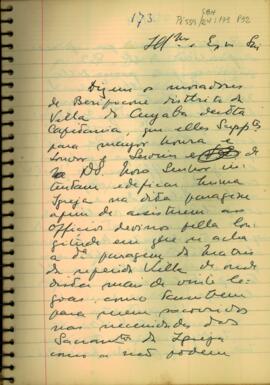 173
SBH
Illmo e Exmo Snr
Dizem os moradores
de Beripocone districto da
Villa do Cuyabá desta
Capitania, que elles Suppes
para mayor honra e
Louvor e Serviço
de Ds. Nosso Senhor in
tentam edificar huma
Igreja na dita paragem
afim de assistirem aos
Officios devinos pella lon
gitude em que se acha
a da. paragem da Matriz
da referida Villa de onde
dista mais de vinte le
goas, como tambem
para serem socorridos
nas necessidades dos
Sacramtos da Igreja
como a não podem